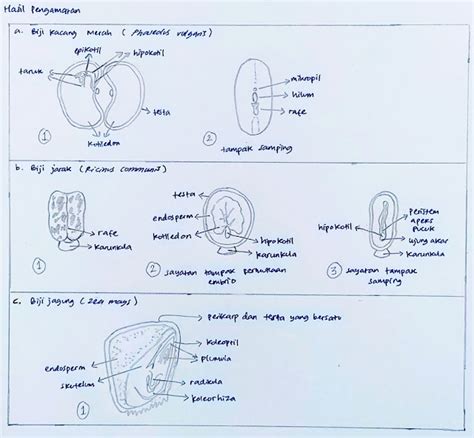 Hasil Pengamatan
a. Biji Kacang Merah (Phaseolus vulgaris)
epikotil
hipokotil
taruk
testa
kotiledon
1
mikropil
hilum
rafe
2
tampak samping
b. Biji jarak (Ricinus communis)
rafe
karunkula
1
testa
endosperm
kotiledon
hipokotil
karunkula
2 sayatan tampak permukaan
embrio
hipokotil
apeks
pucuk
ujung akar
karunkula
3 sayatan tampak
samping
c. Biji jagung (Zea mays)
perikarp dan testa yang bersatu
koleoptil
plumula
endosperm
skutelum
radikula
koleorhiza
1